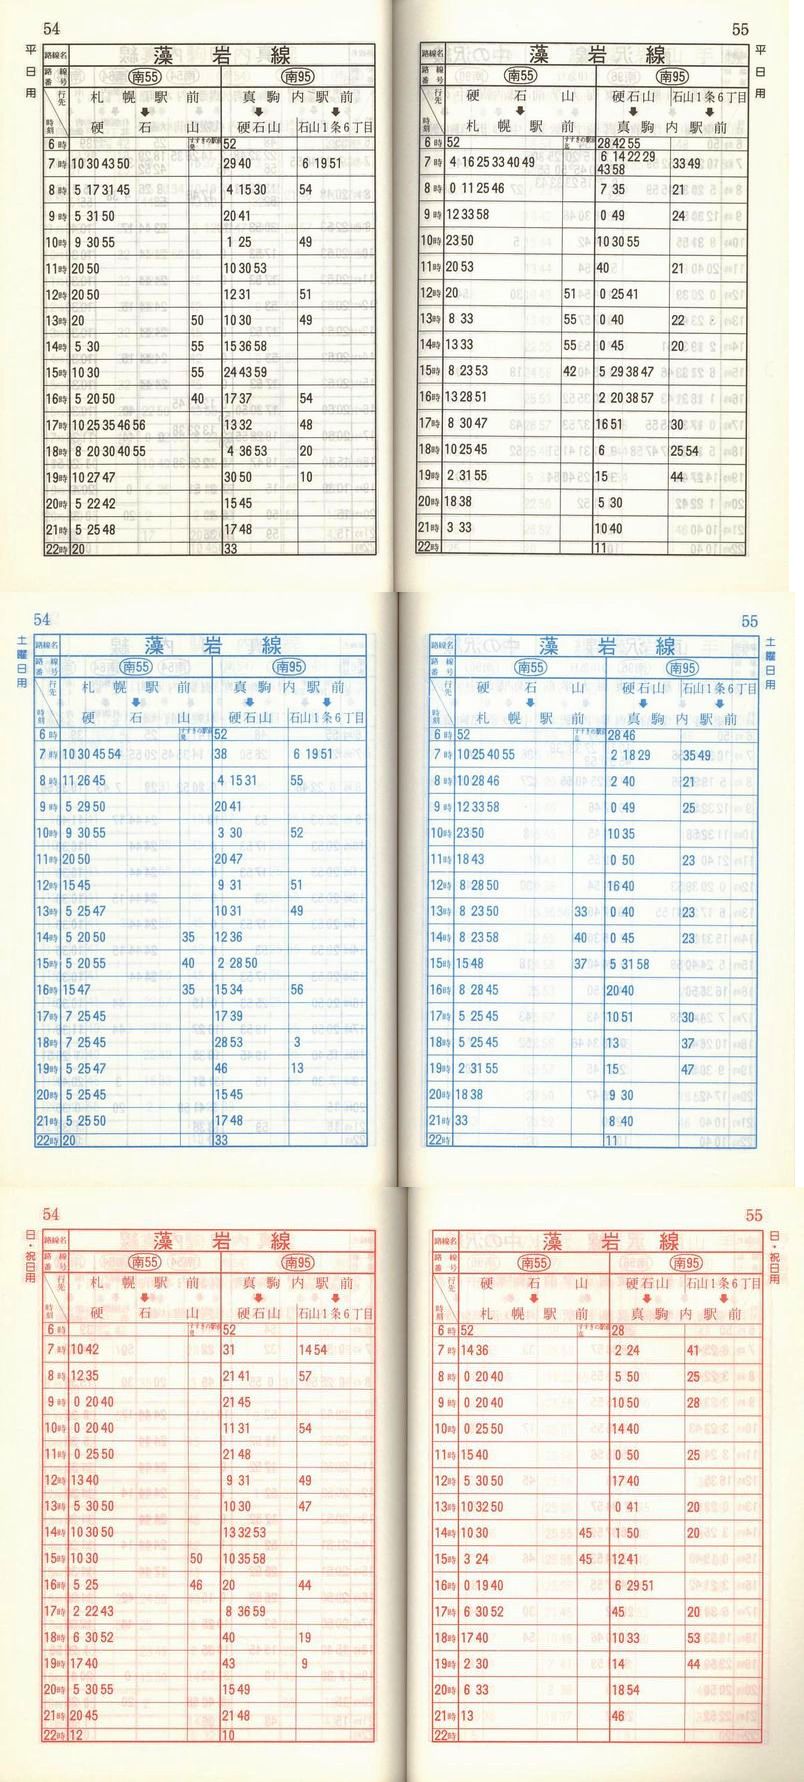 54
平日用
路線名 藻岩線
路線番号 南55 南95
行先 札幌駅前 真駒内駅前
時刻 硬石山 すすきの駅前発 硬石山 石山1条6丁目
6時 52
7時 10 30 43 50 29 40 6 19 51
8時 5 17 31 45 4 15 30 54
9時 5 31 50 20 41
10時 9 30 55 1 25 49
11時 20 50 10 30 53
12時 20 50 12 31 51
13時 20 50 10 30 49
14時 5 30 55 15 36 58
15時 10 30 55 24 43 59
16時 5 20 50 40 17 37 54
17時 10 25 35 46 56 13 32 48
18時 8 20 30 40 55 4 36 53 20
19時 10 27 47 30 50 10
20時 5 22 42 15 45
21時 5 25 48 17 48
22時 20 33
55
平日用
路線名 藻岩線
路線番号 南55 南95
行先 硬石山 硬石山 石山1条6丁目
時刻 札幌駅前 真駒内駅前
6時 52 28 42 55
7時 4 16 25 33 40 49 6 14 22 29 33 49
43 58
8時 0 11 25 46 7 35 21
9時 12 33 58 0 49 24
10時 23 50 10 30 55
11時 20 53 40 21
12時 20 51 0 25 41
13時 8 33 55 0 40 22
14時 13 33 55 0 45 20
15時 8 23 53 42 5 29 38 47
16時 13 28 51 2 20 38 57
17時 8 30 47 16 51 30
18時 10 25 45 6 25 54
19時 2 31 55 15 44
20時 18 38 5 30
21時 3 33 10 40
22時 11
54
土曜日用
路線名 藻岩線
路線番号 南55 南95
行先 札幌駅前 真駒内駅前
時刻 硬石山 すすきの駅前発 硬石山 石山1条6丁目
6時 52
7時 10 30 45 54 38 6 19 51
8時 11 26 45 4 15 31 55
9時 5 29 50 20 41
10時 9 30 55 3 30 52
11時 20 50 20 47
12時 15 45 9 31 51
13時 5 25 47 10 31 49
14時 5 20 50 35 12 36
15時 5 20 55 40 2 28 50
16時 15 47 35 15 34 56
17時 7 25 45 17 39
18時 7 25 45 28 53 3
19時 5 25 47 46 13
20時 5 25 45 15 45
21時 5 25 50 17 48
22時 20 33
55
土曜日用
路線名 藻岩線
路線番号 南55 南95
行先 硬石山 硬石山 石山1条6丁目
時刻 札幌駅前 真駒内駅前
6時 52 28 46
7時 10 25 40 55 2 18 29 35 49
8時 10 28 46 2 40 21
9時 12 33 58 0 49 25
10時 23 50 10 35
11時 18 43 0 50 23
12時 8 28 50 16 40
13時 8 23 50 33 0 40 23
14時 8 23 58 40 0 45 23
15時 15 48 37 5 31 58
16時 8 28 45 20 40
17時 5 25 45 10 51 30
18時 5 25 45 13 37
19時 2 31 55 15 47
20時 18 38 9 30
21時 33 8 40
22時 11
54
日・祝日用
路線名 藻岩線
路線番号 南55 南95
行先 札幌駅前 真駒内駅前
時刻 硬石山 すすきの駅前発 硬石山 石山1条6丁目
6時 52
7時 10 42 31 14 54
8時 12 35 21 41 57
9時 0 20 40 21 45
10時 0 20 40 11 31 54
11時 0 25 50 21 48
12時 13 40 9 31 49
13時 5 30 50 10 30 47
14時 10 30 50 13 32 53
15時 10 30 50 10 35 58
16時 5 25 46 20 44
17時 2 22 43 8 36 59
18時 6 30 52 40 19
19時 17 40 43 9
20時 5 30 55 15 49
21時 20 45 21 48
22時 12 10
55
日・祝日用
路線名 藻岩線
路線番号 南55 南95
行先 硬石山 硬石山 石山1条6丁目
時刻 札幌駅前 真駒内駅前
6時 52 28
7時 14 36 2 24 41
8時 0 20 40 5 50 25
9時 0 20 40 10 50 28
10時 0 25 50 14 40
11時 15 40 0 50 25
12時 5 30 50 17 40
13時 10 32 50 0 41 20
14時 10 30 45 1 50 20
15時 3 24 45 12 41
16時 0 19 40 6 29 51
17時 6 30 52 45 20
18時 17 40 10 33 53
19時 2 30 14 44
20時 6 33 18 54
21時 13 46
22時